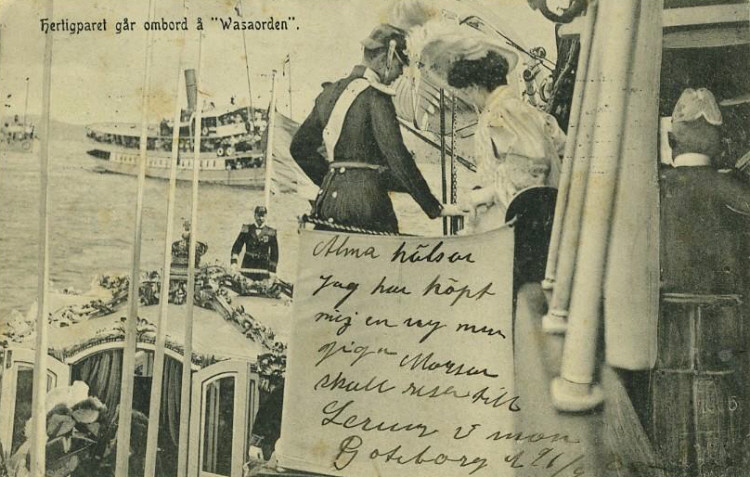 Hertigparet går ombord å "Wasaorden".
Alma hälsar
Jag har köpt
mig en ny mun
giga Morsor
skall resa till
Lerum i mån
Göteborg d 26/9